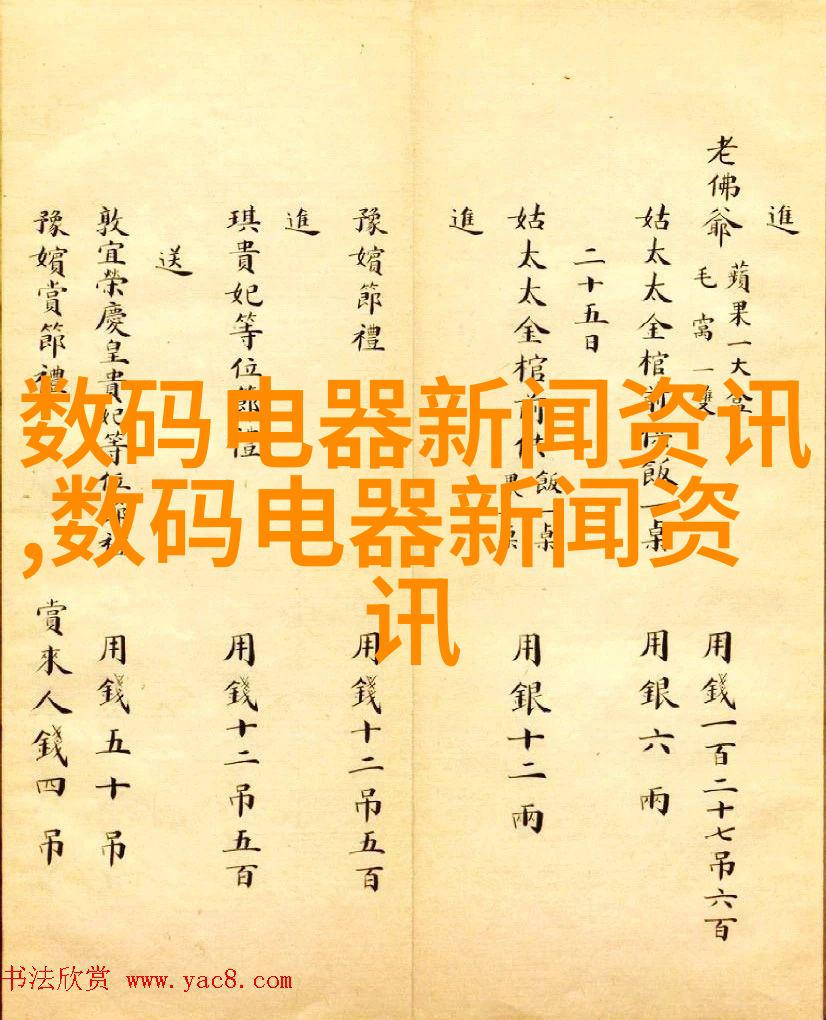 進
老佛爺 蘋果一大盒 毛窩一雙 用錢一百二十七吊六百
姑太太金棺前供飯一桌 用銀六兩
二十五日
姑太太金棺前供飯一桌 果一桌 用銀十二兩
進
豫嬪節禮 用錢十二吊五百
進
琪貴妃等位節禮 用錢十二吊五百
送
敦宜榮慶皇貴妃等位節禮 用錢五十吊
豫嬪賞節禮 賞來人錢四吊
数码电器新闻资讯
,数码电器新闻资
讯
书法欣赏 www.yac8.com